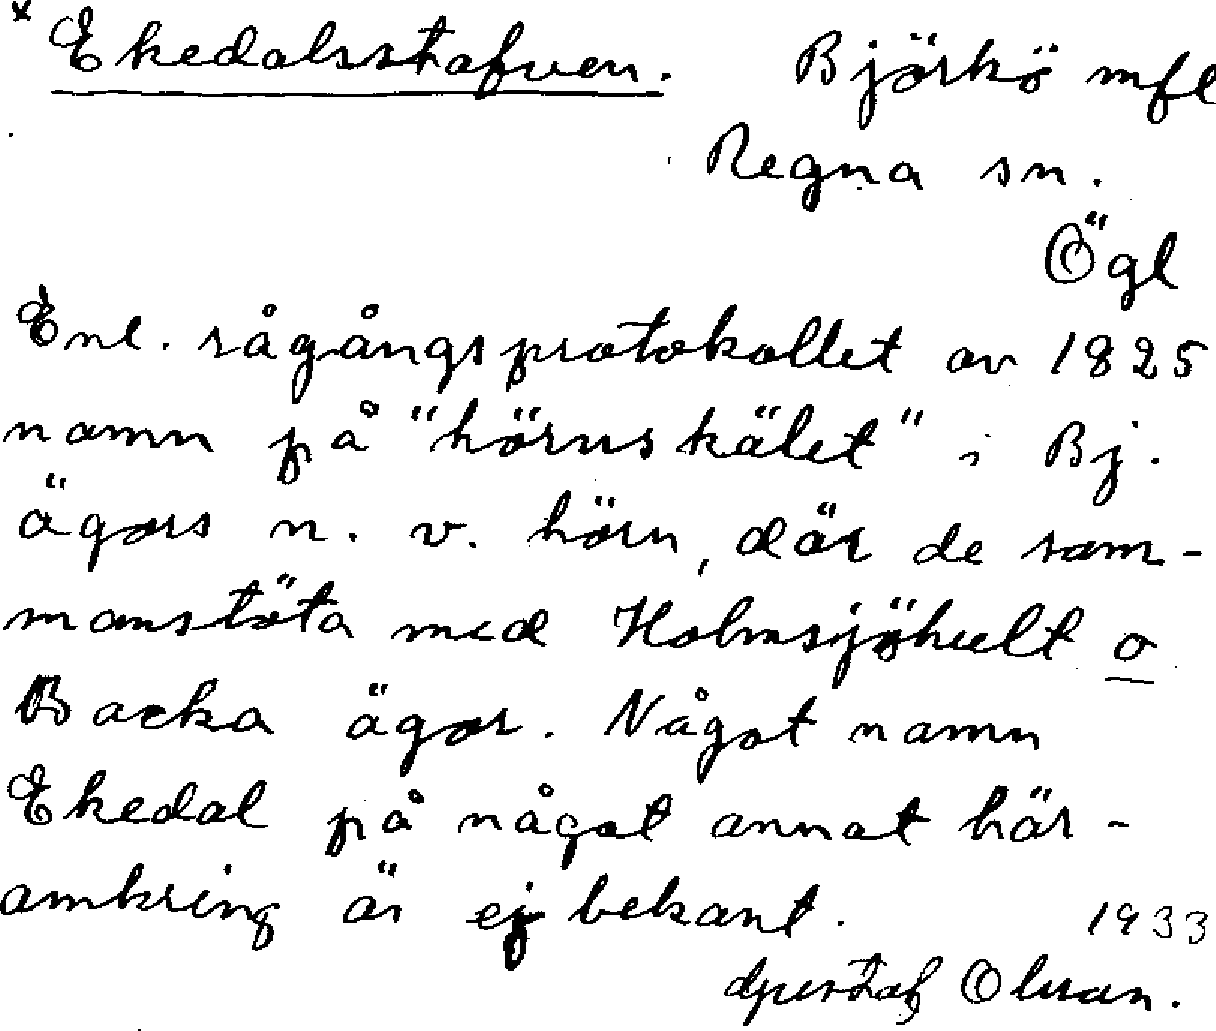 x Ekedalsstafven. Björkö mfl
Regna sn.
Ögl
Enl. rågångsprotokollet av 1825
namn på "hörnskälet" i Bj.
ägors n. v. hörn, där de sam-
manstöta med Holmsjöhult o
Backa ägor. Något namn
Ekedal på något annat här-
omkring är ej bekant. 1933
Gustaf Olsson.